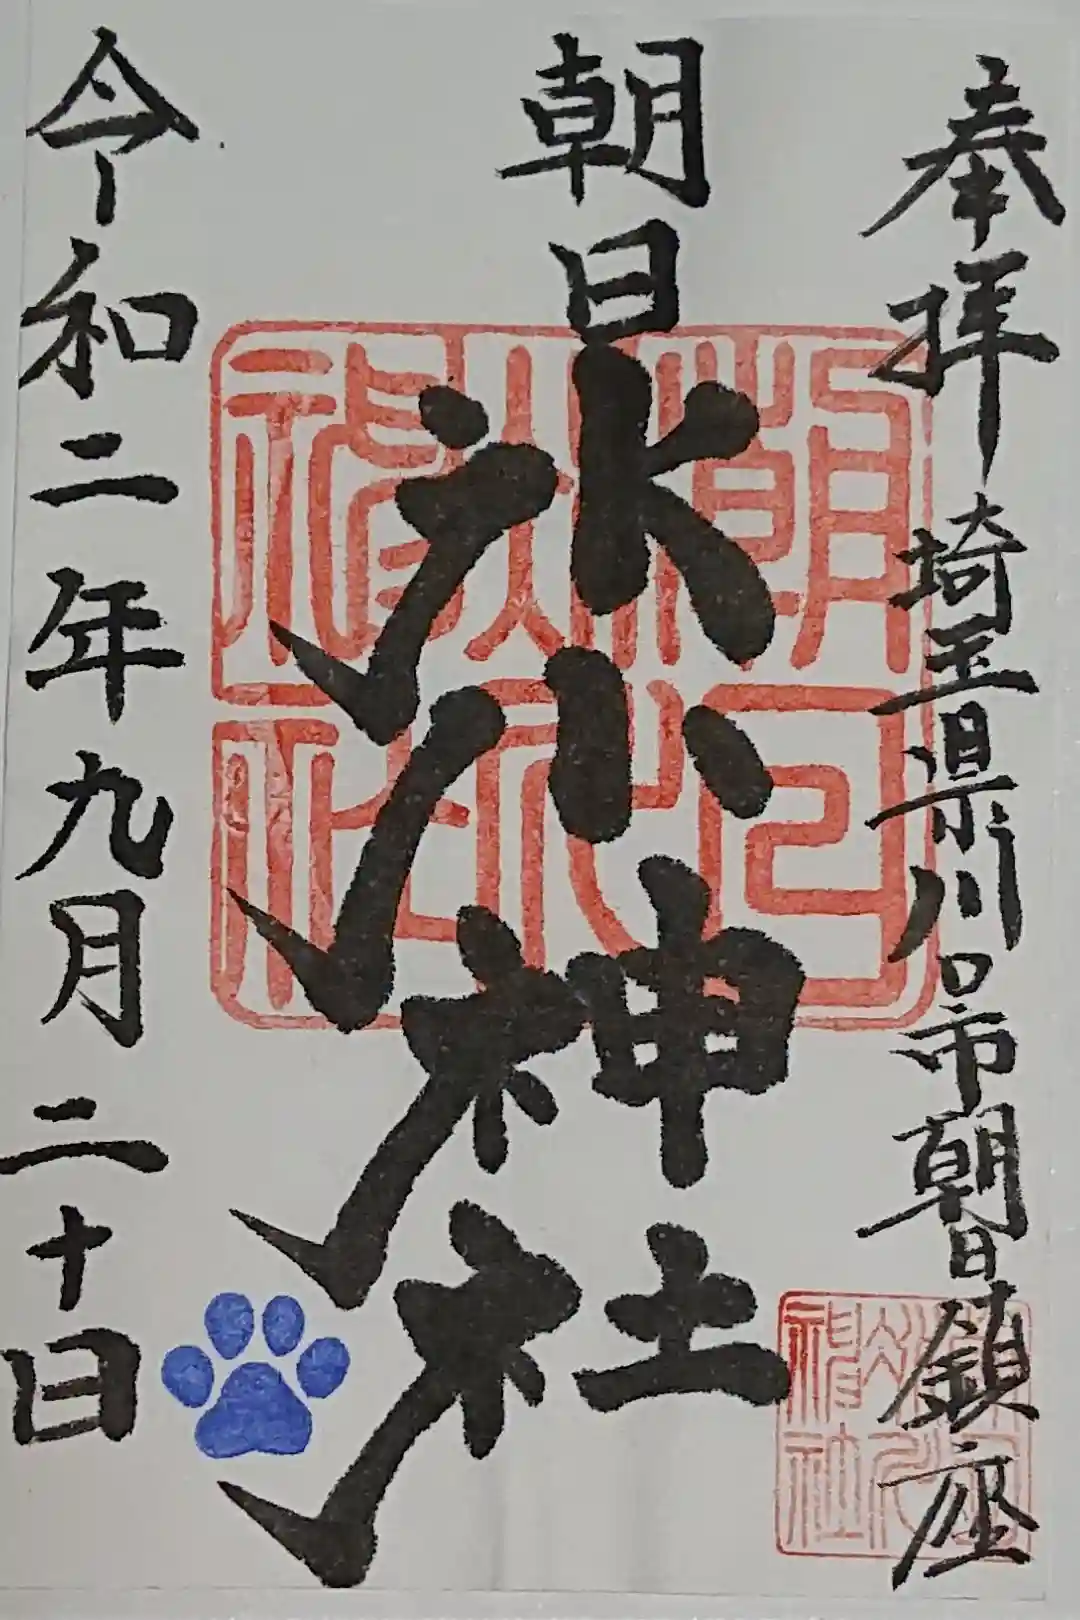 奉拝 埼玉県川口市朝日鎮座
朝日氷川神社
令和二年九月二十日
朝日氷川神社